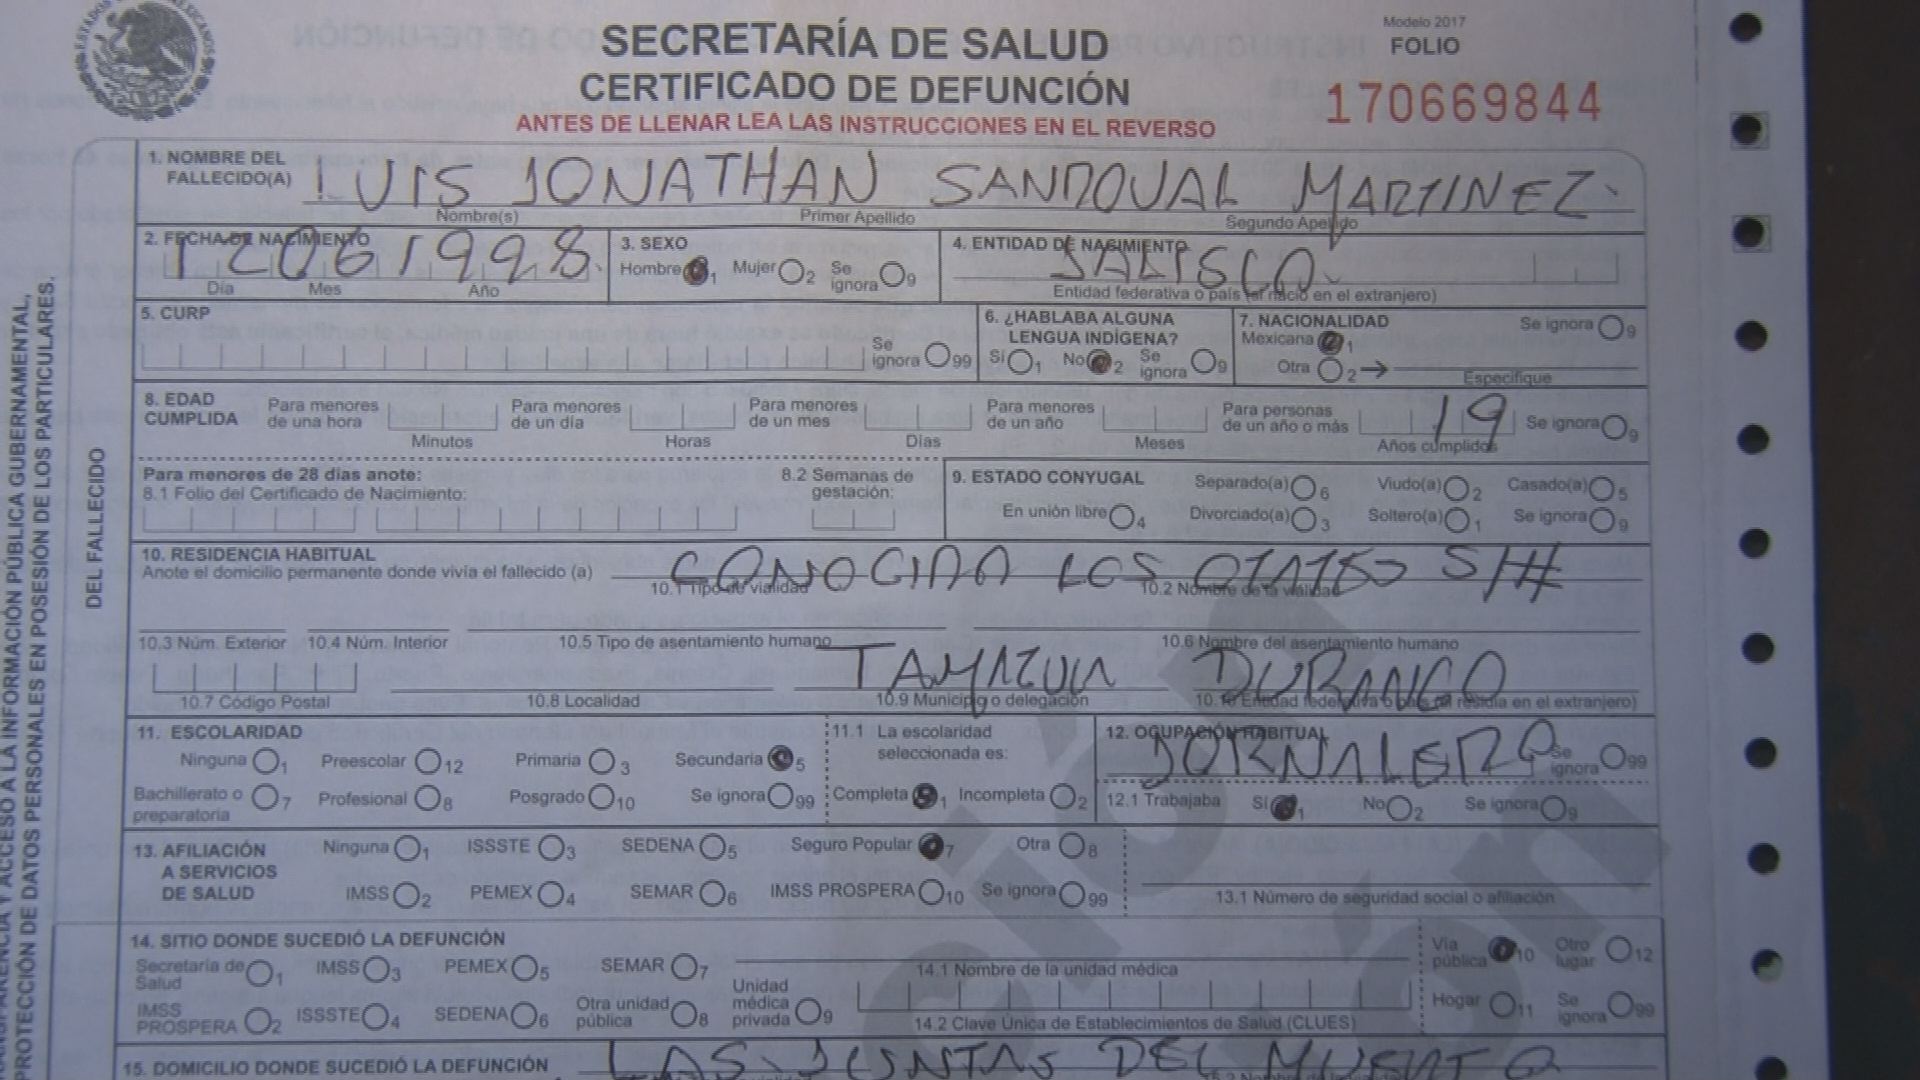 Modelo 2017
SECRETARÍA DE SALUD
FOLIO
CERTIFICADO DE DEFUNCIÓN
170669844
ANTES DE LLENAR LEA LAS INSTRUCCIONES EN EL REVERSO
1. NOMBRE DEL FALLECIDO(A) LUIS JONATHAN SANDOVAL MARTINEZ
Nombre(s) Primer Apellido Segundo Apellido
2. FECHA DE NACIMIENTO 12061998 3. SEXO 4. ENTIDAD DE NACIMIENTO JALISCO
Hombre 1 Mujer 2 Se ignora 9
Día Mes Año Entidad federativa o país (si nació en el extranjero)
5. CURP Se ignora 99 6. ¿HABLABA ALGUNA LENGUA INDÍGENA? 7. NACIONALIDAD Se ignora 9
Sí 1 No 2 Se ignora 9 Mexicana 1
Otra 2 Especifique
8. EDAD CUMPLIDA Para menores de una hora Para menores de un día Para menores de un mes Para menores de un año Para personas de un año o más 19 Se ignora 9
Minutos Horas Días Meses Años cumplidos
Para menores de 28 días anote: 8.2 Semanas de gestación: 9. ESTADO CONYUGAL Separado(a) 6 Viudo(a) 2 Casado(a) 5
8.1 Folio del Certificado de Nacimiento: En unión libre 4 Divorciado(a) 3 Soltero(a) 1 Se ignora 9
10. RESIDENCIA HABITUAL CONOCIDA LOS S/#
Anote el domicilio permanente donde vivía el fallecido (a) 10.1 Tipo de vialidad 10.2 Nombre de la vialidad
10.3 Núm. Exterior 10.4 Núm. Interior 10.5 Tipo de asentamiento humano 10.6 Nombre del asentamiento humano
TAMAZULA DURANGO
10.7 Código Postal 10.8 Localidad 10.9 Municipio o delegación 10.10 Entidad federativa o país (si residía en el extranjero)
11. ESCOLARIDAD 11.1 La escolaridad seleccionada es: 12. OCUPACIÓN HABITUAL JORNALERO Se ignora 99
Ninguna 1 Preescolar 12 Primaria 3 Secundaria 5
Bachillerato o preparatoria 7 Profesional 8 Posgrado 10 Se ignora 99 Completa 1 Incompleta 2 12.1 Trabajaba Sí 1 No 2 Se ignora 9
13. AFILIACIÓN A SERVICIOS DE SALUD Ninguna 1 ISSSTE 3 SEDENA 5 Seguro Popular 7 Otra 8
IMSS 2 PEMEX 4 SEMAR 6 IMSS PROSPERA 10 Se ignora 99 13.1 Número de seguridad social o afiliación
14. SITIO DONDE SUCEDIÓ LA DEFUNCIÓN
Secretaría de Salud 1 IMSS 3 PEMEX 5 SEMAR 7 14.1 Nombre de la unidad médica Vía pública 10 Otro lugar 12
IMSS PROSPERA 2 ISSSTE 4 SEDENA 6 Otra unidad pública 8 Unidad médica privada 9 14.2 Clave Única de Establecimientos de Salud (CLUES) Hogar 11 Se ignora 99
15. DOMICILIO DONDE SUCEDIÓ LA DEFUNCIÓN LAS JUNTAS DEL MUERTO
DEL FALLECIDO
PROTECCIÓN DE DATOS PERSONALES EN POSESIÓN DE LOS PARTICULARES.
ACCESO A LA INFORMACIÓN PÚBLICA GUBERNAMENTAL,